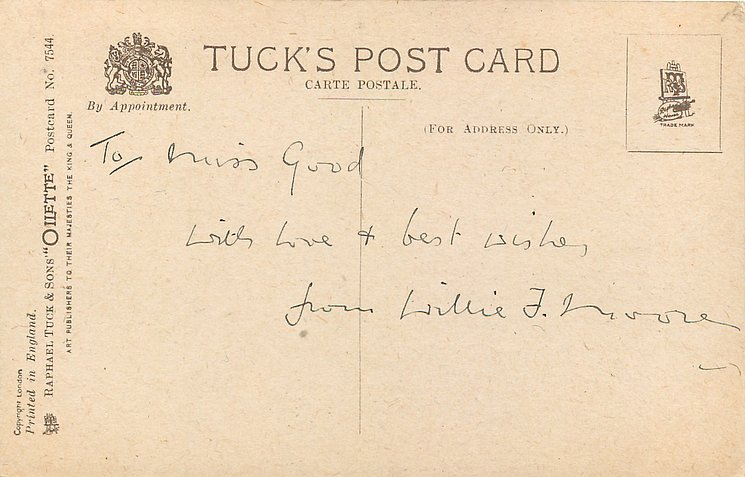 TUCK'S POST CARD
CARTE POSTALE.
By Appointment.
(FOR ADDRESS ONLY.)
TRADE MARK
To Miss Good
with love & best wishes
from Willie F. Moore
Copyright London
Printed in England.
RAPHAEL TUCK & SONS' "OILETTE" Postcard No. 7544.
ART PUBLISHERS TO THEIR MAJESTIES THE KING & QUEEN.